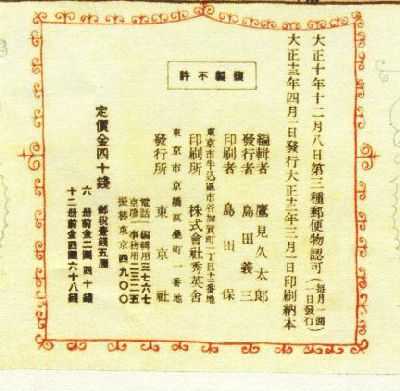 大正十年十二月八日第三種郵便物認可(毎月一回一日發行)
大正十三年四月一日發行大正十三年三月一日印刷納本
複製不許
編輯者 鷹見久太郎
發行者 島田義三
印刷者 島田保
東京市牛込區市谷加賀町一丁目十二番地
印刷所 株式會社秀英舍
東京市京橋區疊町一番地
發行所 東京社
電話 編輯用三七六七
京橋 事務用二三二五
振替東京四九〇〇
定價金四十錢 郵税壹錢五厘
六册前金二圓四十錢
十二册前金四圓六十八錢